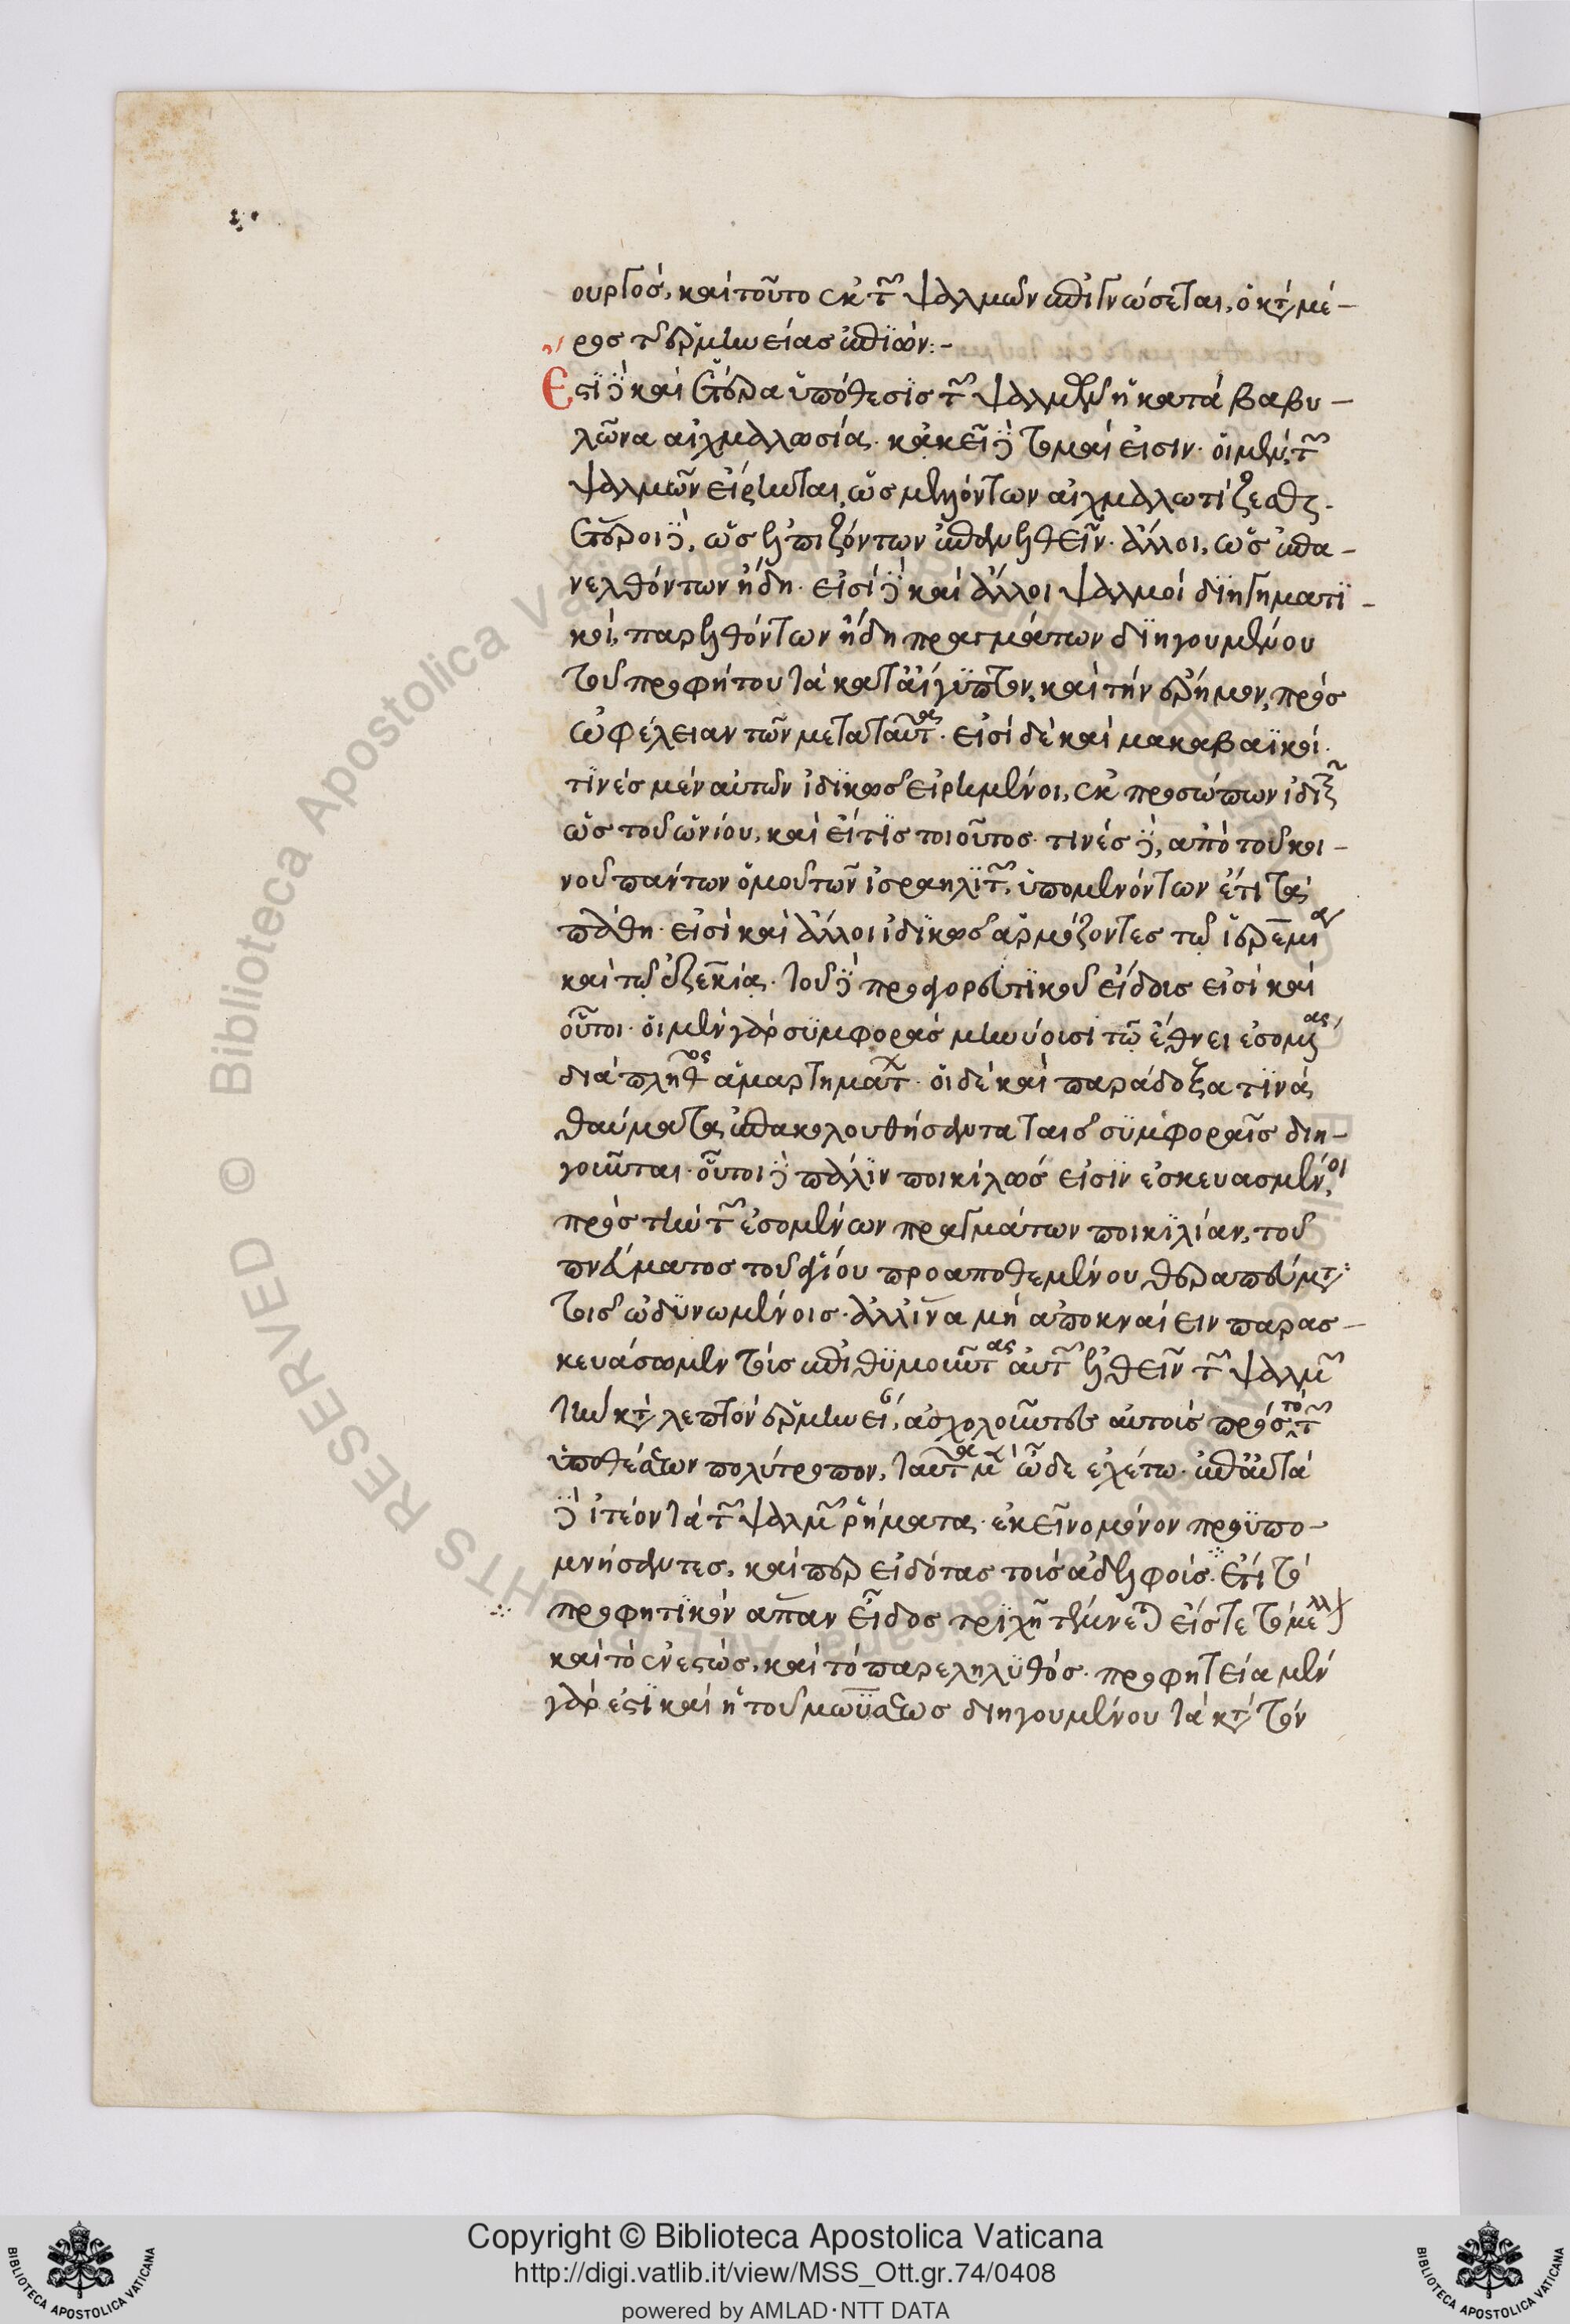 ουργός, καὶ τοῦτο ἐκ τῶν ψαλμῶν ἐπιγνώσεται, ὁ κατὰ μέ-
ρος τῆς ἑρμηνείας ἐπιών:-
Ἔστι δὲ καὶ ἑτέρα ὑπόθεσις τῶν ψαλμῶν ἡ κατὰ βαβυ-
λῶνα αἰχμαλωσία. κἀκεῖ δὲ τομαί εἰσιν. οἱ μὲν, τῶν
ψαλμῶν εἴρηνται, ὡς μελλόντων αἰχμαλωτίζεσθαι.
ἕτεροι δὲ, ὡς ἐλπιζόντων ἐπανελθεῖν. ἄλλοι, ὡς ἐπα-
νελθόντων ἤδη. εἰσὶ δὲ καὶ ἄλλοι ψαλμοὶ διηγηματι-
κοὶ, παρελθόντων ἤδη πραγμάτων διηγουμένου
τοῦ προφήτου τὰ κατ' αἴγυπτον, καὶ τὴν ἔρημον, πρὸς
ὠφέλειαν τῶν μετὰ ταῦτα. εἰσὶ δὲ καὶ μακαβαϊκοὶ.
τινὲς μὲν αὐτῶν ἰδικῶς εἰρημένοι, ἐκ προσώπων ἰδικῶν
ὡς τοῦ ὠνίου, καὶ εἴ τις τοιοῦτος. τινὲς δὲ, ἀπὸ τοῦ κοι-
νοῦ πάντων ὁμοῦ τῶν ἰσραηλιτῶν, ὑπομενόντων ἔτι τὰ
πάθη. εἰσὶ καὶ ἄλλοι ἰδικῶς ἁρμόζοντες τῷ ἱερεμίᾳ
καὶ τῷ ἐζεκίᾳ. τοῦ δὲ προαγορευτικοῦ εἴδους εἰσὶ καὶ
οὗτοι. οἱ μὲν γὰρ συμφορὰς μηνύουσι τῷ ἔθνει ἐσομένας
διὰ πλῆθος ἁμαρτημάτων. οἱ δὲ καὶ παράδοξά τινα
θαύματα, ἐπακολουθήσαντα ταῖς συμφοραῖς διη-
γοῦνται. οὗτοι δὲ πάλιν ποικίλως εἰσὶν ἐσκευασμένοι,
πρὸς τὴν τῶν ἐσομένων πραγμάτων ποικιλίαν, τοῦ
πνεύματος τοῦ ἁγίου προαποθεμένου θεραπεύματα
τοῖς ὠδυνωμένοις. ἀλλ' ἵνα μὴ ἀποκναίειν παρασ-
κευάσωμεν τοὺς ἐπιθυμοῦντας αὐτῶν ἐλθεῖν τῶν ψαλμῶν
τὴν κατὰ λεπτὸν ἑρμηνείαν, ἀσχολοῦντες αὐτοὺς πρὸς τὸ τῶν
ὑποθέσεων πολύτροπον, ταῦτα μὲν ὧδε ἐχέτω. ἐπ' αὐτὰ
δὲ ἰτέον τὰ τῶν ψαλμῶν ῥήματα. ἐκεῖνο μόνον προϋπο-
μνήσαντες, καίπερ εἰδότας τοὺς ἀδελφούς. ὅτι τὸ
προφητικὸν ἅπαν εἶδος τριχῇ τέμνεται εἴς τε τὸ μέλλον
καὶ τὸ ἐνεστώς, καὶ τὸ παρεληλυθός. προφητεία μὲν
γάρ ἐστι καὶ ἡ τοῦ μωϋσέως διηγουμένου τὰ κατὰ τὸν
Copyright © Biblioteca Apostolica Vaticana
http://digi.vatlib.it/view/MSS_Ott.gr.74/0408
powered by AMLAD·NTT DATA